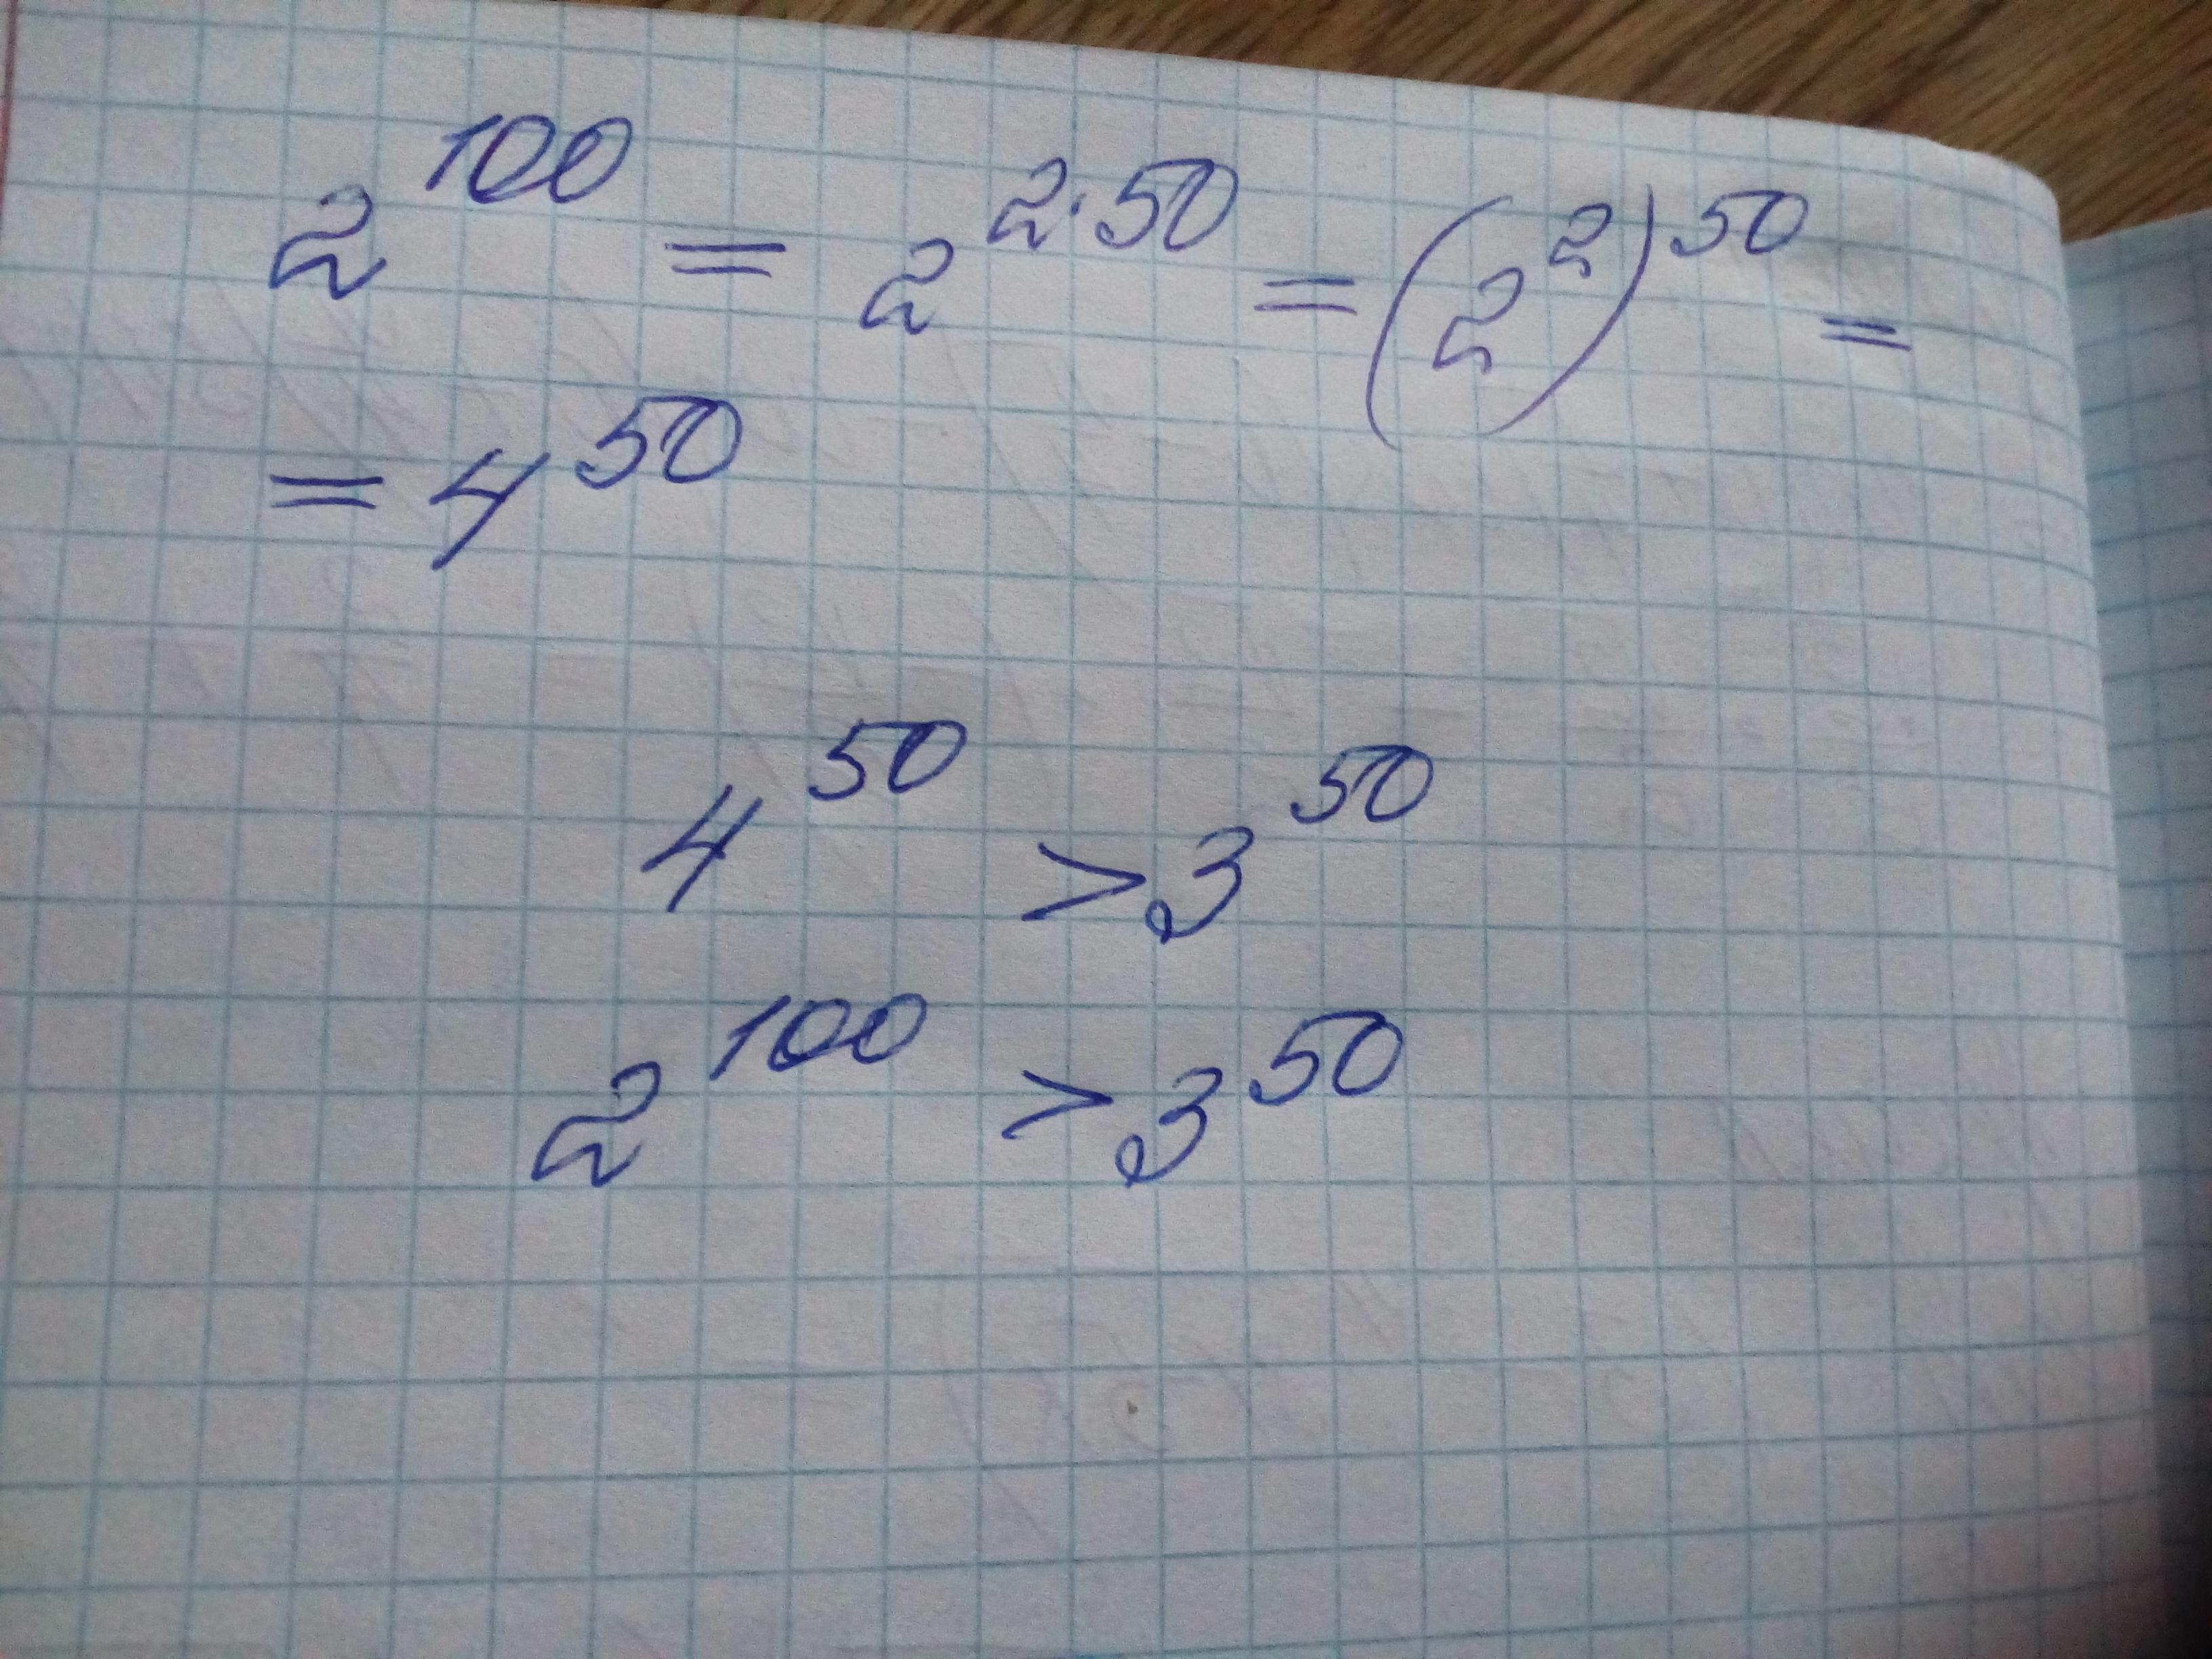 2^100 = 2^2·50 = (2^2)^50 =
= 4^50
4^50 > 3^50
2^100 > 3^50